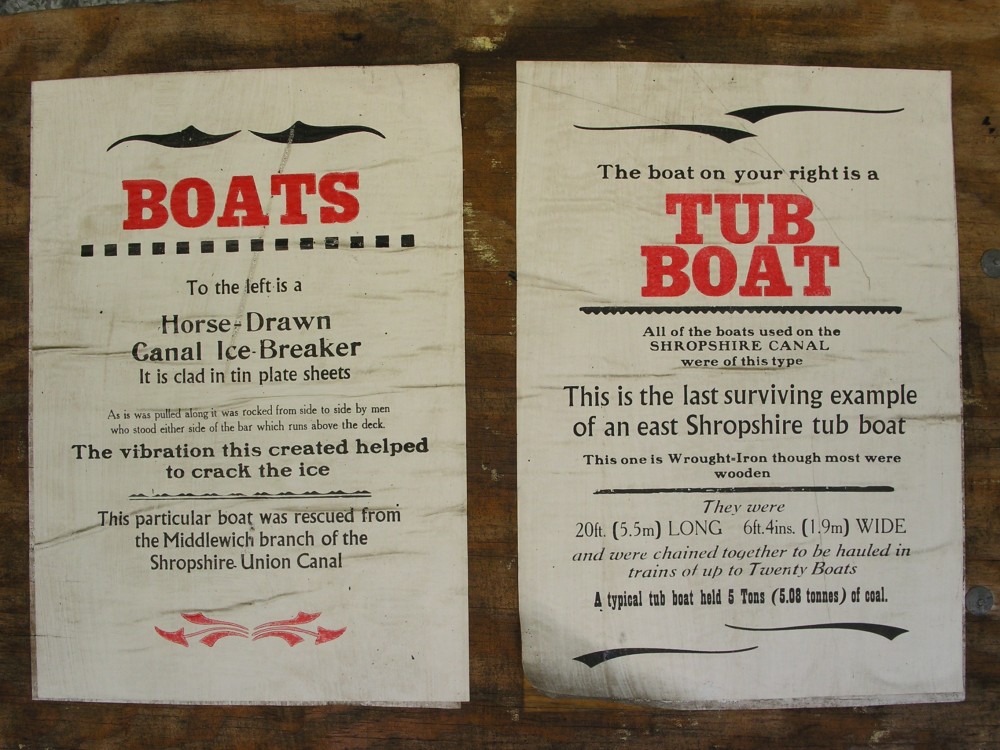 BOATS
To the left is a
Horse-Drawn
Canal Ice-Breaker
It is clad in tin plate sheets
As is was pulled along it was rocked from side to side by men
who stood either side of the bar which runs above the deck.
The vibration this created helped
to crack the ice
This particular boat was rescued from
the Middlewich branch of the
Shropshire Union Canal
The boat on your right is a
TUB
BOAT
All of the boats used on the
SHROPSHIRE CANAL
were of this type
This is the last surviving example
of an east Shropshire tub boat
This one is Wrought-Iron though most were
wooden
They were
20ft. (5.5m) LONG 6ft.4ins. (1.9m) WIDE
and were chained together to be hauled in
trains of up to Twenty Boats
A typical tub boat held 5 Tons (5.08 tonnes) of coal.